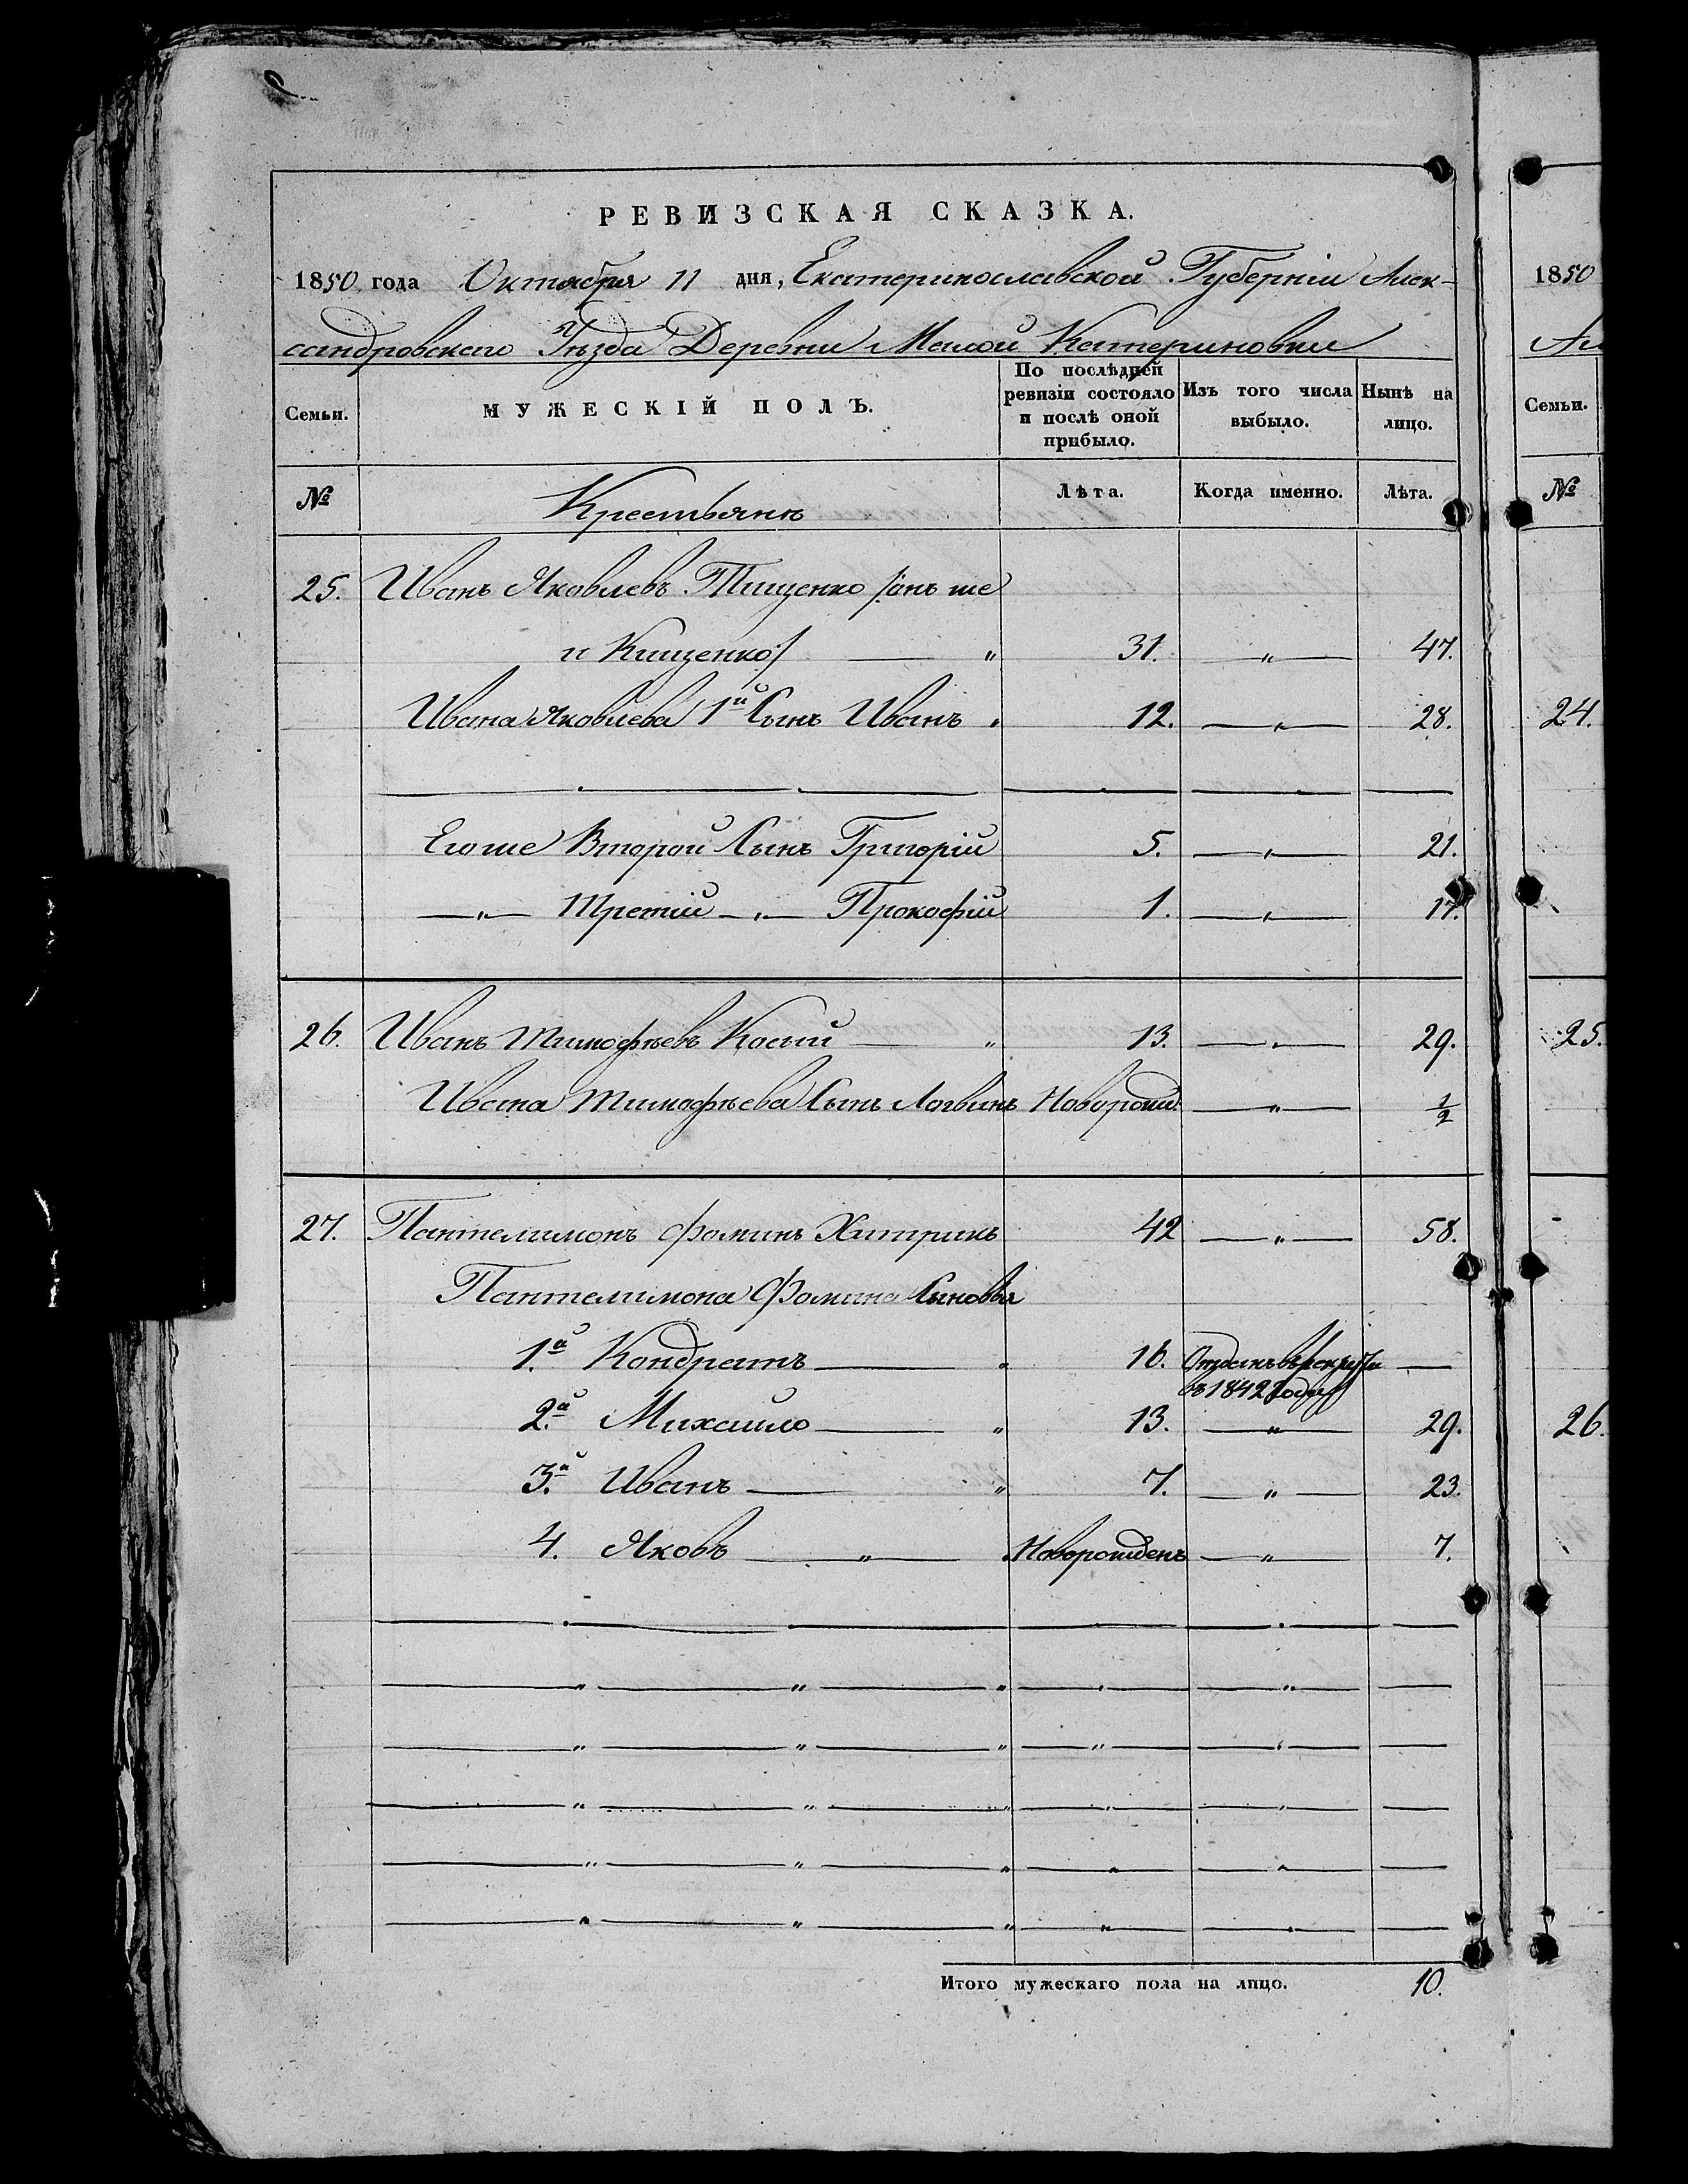 РЕВИЗСКАЯ СКАЗКА.
1850 года Октября 11 дня, Екатеринославской Губерніи Алек-
сандровскаго Уѣзда Деревни Малой Катериновки
Семьи. МУЖЕСКІЙ ПОЛЪ. По послѣдней ревизіи состояло и послѣ оной прибыло. Изъ того числа выбыло. Нынѣ на лицо.
№ Крестьянъ Лѣта. Когда именно. Лѣта.
25. Иванъ Яковлевъ Тищенко /онъ же
и Кищенко/ — " 31. — " — 47.
Ивана Яковлева 1й Сынъ Иванъ " 12. — " — 28.
Егоже Второй Сынъ Григорій 5. — " — 21.
— " — Третій — " — Прокофій 1. — " — 17.
26. Иванъ Тимофѣевъ Косый — " 13. — " — 29.
Ивана Тимофѣева Сынъ Логвинъ Новорожд. — " — 1/2
27. Пантелимонъ Фоминъ Хитрикъ 42 — " — 58.
Пантелимона Фомина Сыновья
1.й Кондратъ — " 16. Отданъ въ рекруты —
въ 1842 году
2.й Михайло — " 13. — " — 29.
3.й Иванъ — " 7. — " — 23.
4. Яковъ — " — Новорожденъ — " — 7.
Итого мужескаго пола на лицо. 10.
1850
Ал
Семьи.
№
24.
25.
26.